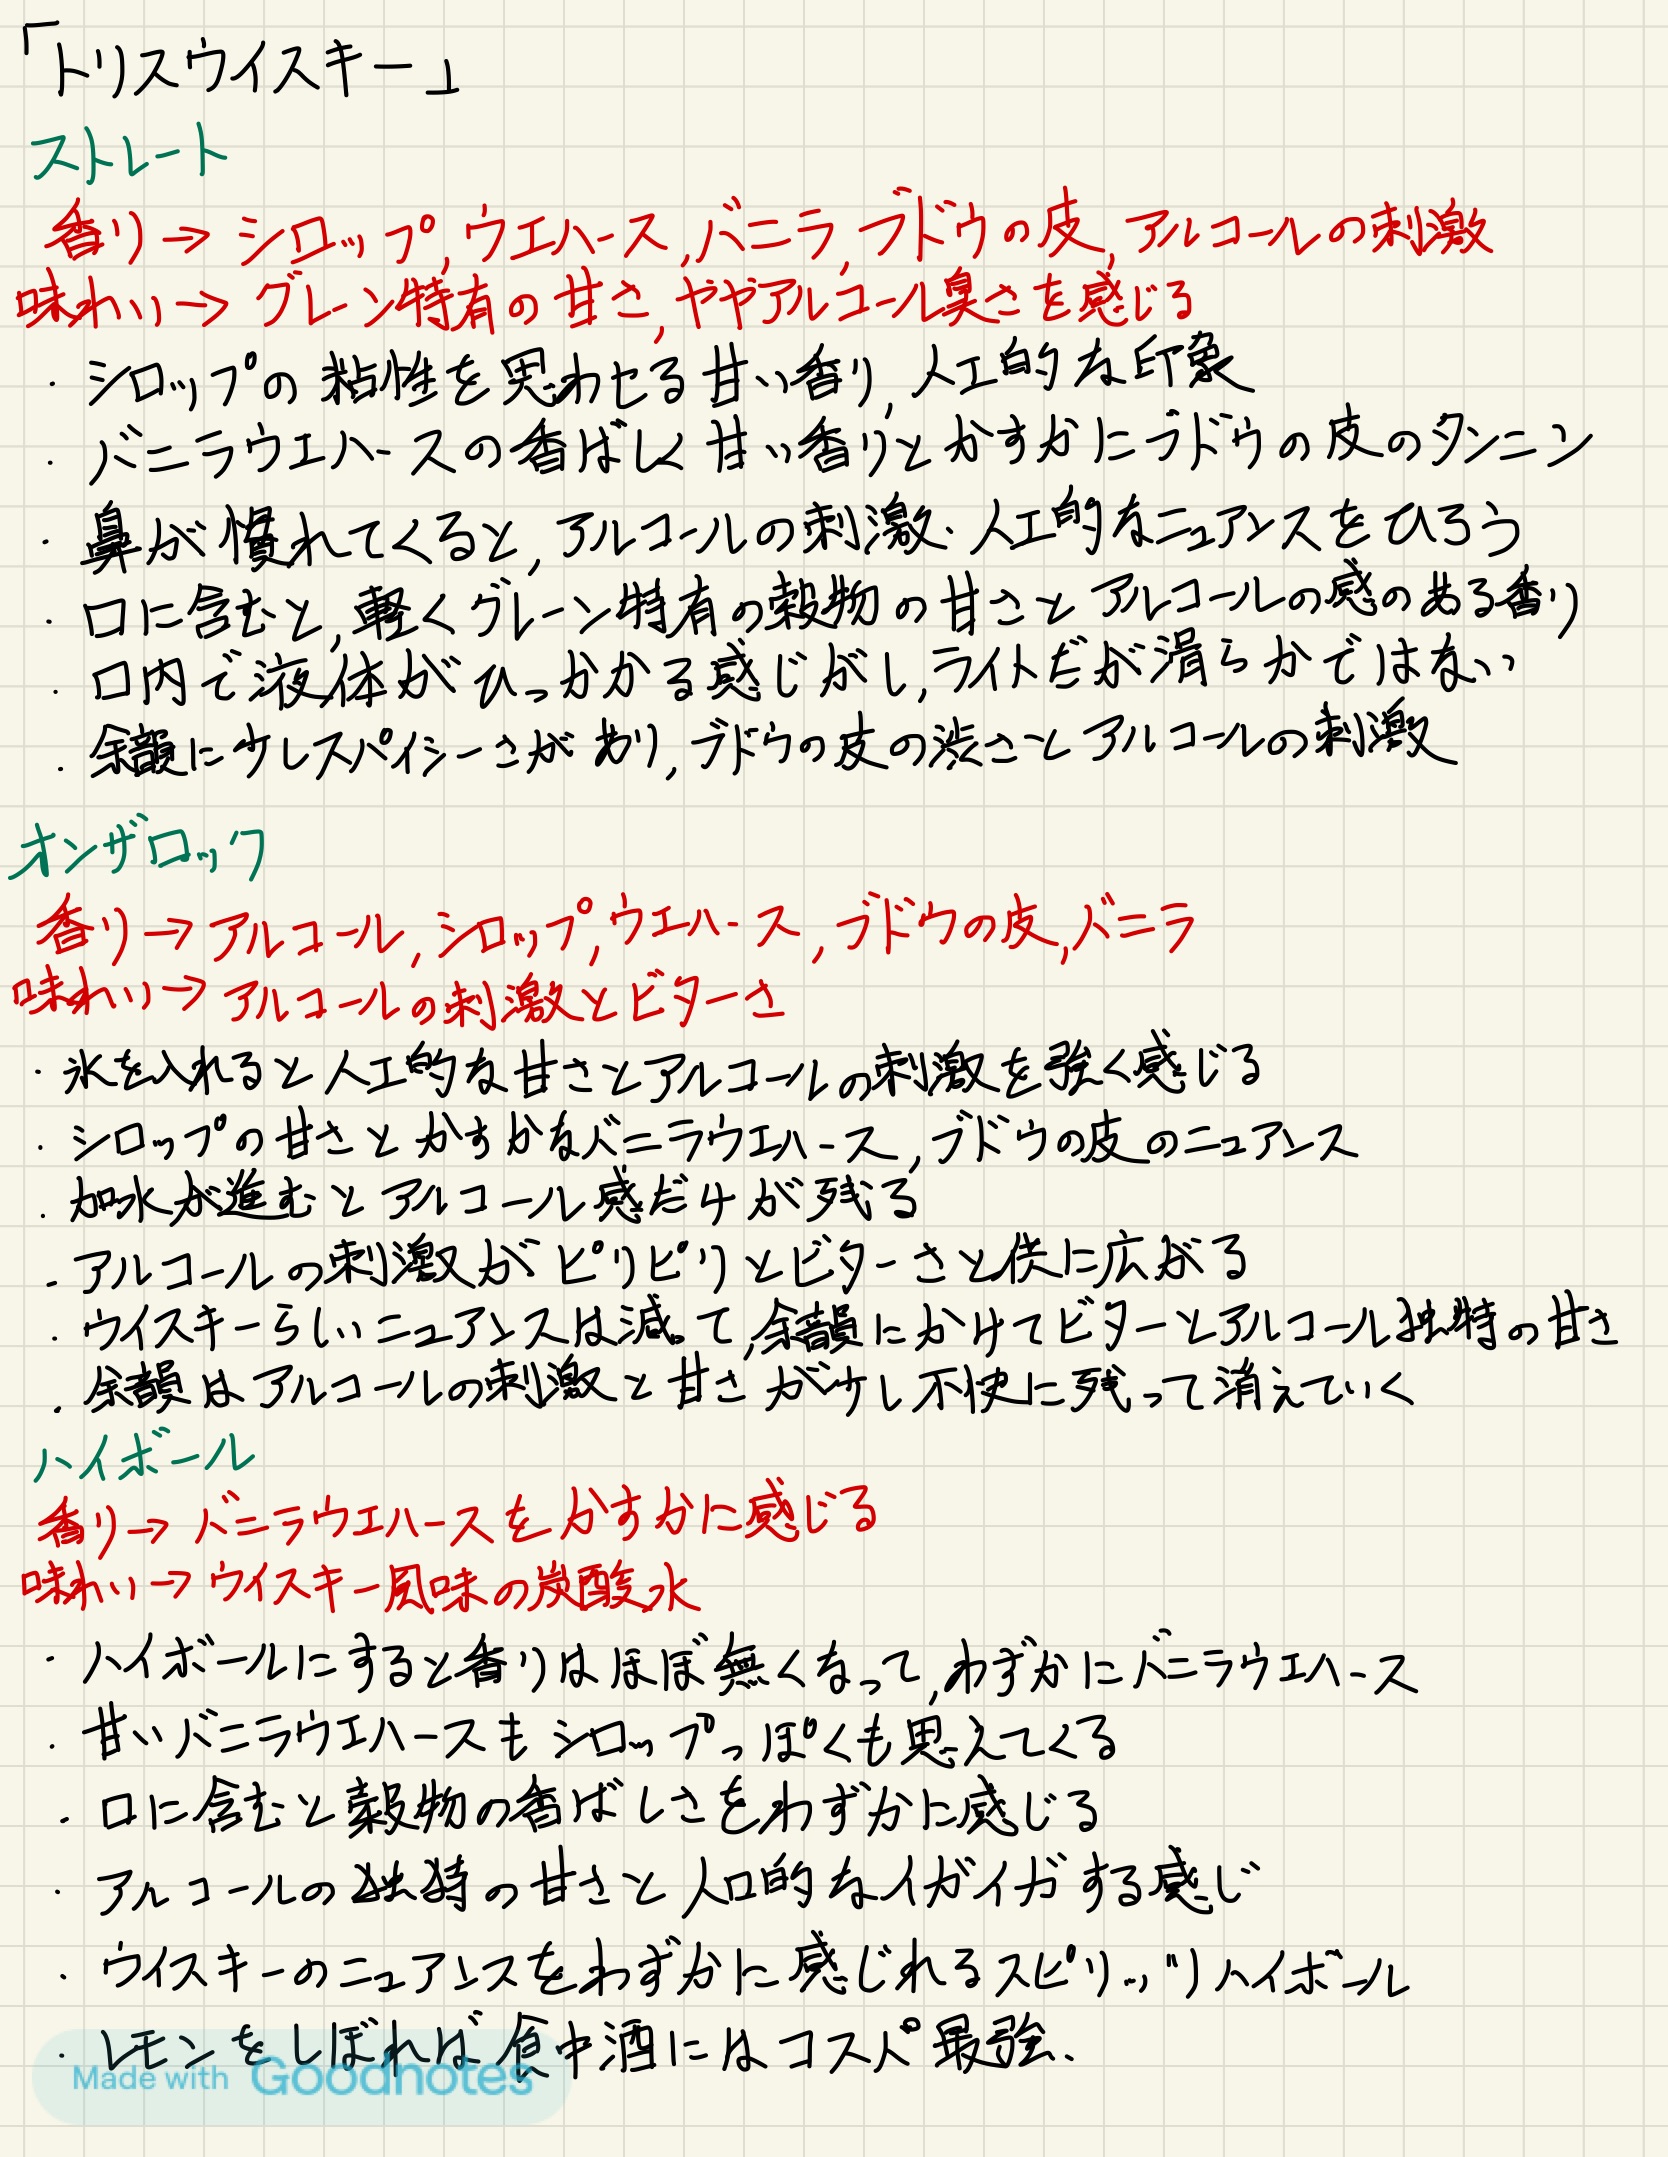 「トリスウイスキー」
ストレート
香り→シロップ,ウエハース,バニラ,ブドウの皮,アルコールの刺激
味わい→グレーン特有の甘さ,ややアルコール臭さを感じる
・シロップの粘性を思わせる甘い香り,人工的な印象
・バニラウエハースの香ばしく甘い香りとかすかにブドウの皮のタンニン
・鼻が慣れてくると,アルコールの刺激・人工的なニュアンスをひろう
・口に含むと,軽くグレーン特有の穀物の甘さとアルコールの感のある香り
・口内で液体がひっかかる感じがし,ライトだが滑らかではない
・余韻に少しスパイシーさがあり,ブドウの皮の渋さとアルコールの刺激
オンザロック
香り→アルコール,シロップ,ウエハース,ブドウの皮,バニラ
味わい→アルコールの刺激とビターさ
・氷を入れると人工的な甘さとアルコールの刺激を強く感じる
・シロップの甘さとかすかなバニラウエハース,ブドウの皮のニュアンス
・加水が進むとアルコール感だけが残る
・アルコールの刺激がピリピリとビターさと供に広がる
・ウイスキーらしいニュアンスは減って,余韻にかけてビターとアルコール独特の甘さ
・余韻はアルコールの刺激と甘さが少し不快に残って消えていく
ハイボール
香り→バニラウエハースをかすかに感じる
味わい→ウイスキー風味の炭酸水
・ハイボールにすると香りはほぼ無くなって,わずかにバニラウエハース
・甘いバニラウエハースもシロップっぽくも思えてくる
・口に含むと穀物の香ばしさをわずかに感じる
・アルコールの独特の甘さと人口的なイガイガする感じ
・ウイスキーのニュアンスをわずかに感じれるスピリッツハイボール
・レモンをしぼれば食中酒にはコスパ最強.
Made with Goodnotes